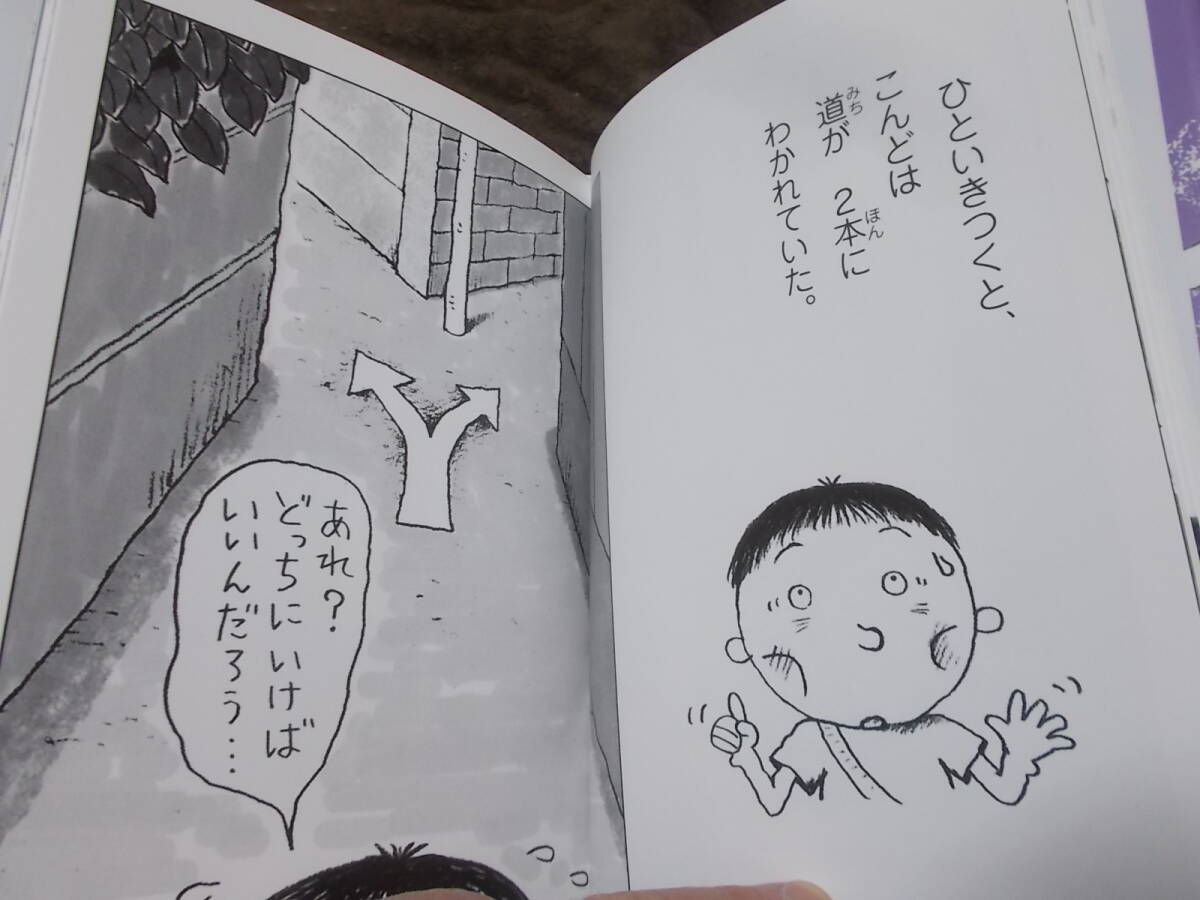 ひといきつくと、
こんどは
道が 2本に
わかれていた。
みち
ほん
あれ?
どっちにいけば
いいんだろう…